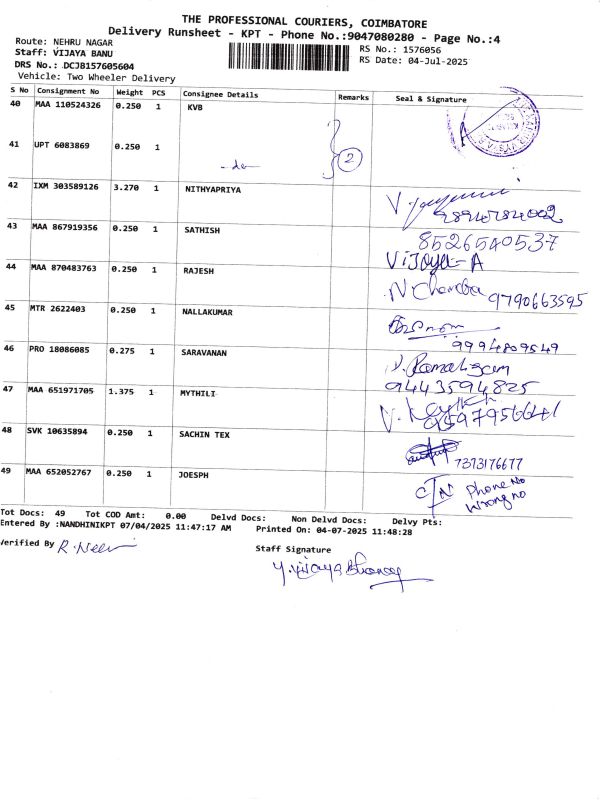 THE PROFESSIONAL COURIERS, COIMBATORE
Delivery Runsheet - KPT - Phone No.:9047080280 - Page No.:4
Route: NEHRU NAGAR
Staff: VIJAYA BANU
DRS No.: DCJB157605604
Vehicle: Two Wheeler Delivery
RS No.: 1576056
RS Date: 04-Jul-2025
S No Consignment No Weight PCS Consignee Details Remarks Seal & Signature
40 MAA 110524326 0.250 1 KVB
41 UPT 6083869 0.250 1 -do- 2
42 IXM 303589126 3.270 1 NITHYAPRIYA
43 MAA 867919356 0.250 1 SATHISH 8526540537
Vijaya-A
44 MAA 870483763 0.250 1 RAJESH N Chandra 9790663595
45 MTR 2622403 0.250 1 NALLAKUMAR
9994809549
46 PRO 18086085 0.275 1 SARAVANAN V. Ramalingam
9443594825
47 MAA 651971705 1.375 1 MYTHILI
48 SVK 10635894 0.250 1 SACHIN TEX 7373176677
49 MAA 652052767 0.250 1 JOESPH C/N Phone No
Wrong no
Tot Docs: 49 Tot COD Amt: 0.00 Delvd Docs: Non Delvd Docs: Delvy Pts:
Entered By :NANDHINIKPT 07/04/2025 11:47:17 AM Printed On: 04-07-2025 11:48:28
Verified By
Staff Signature